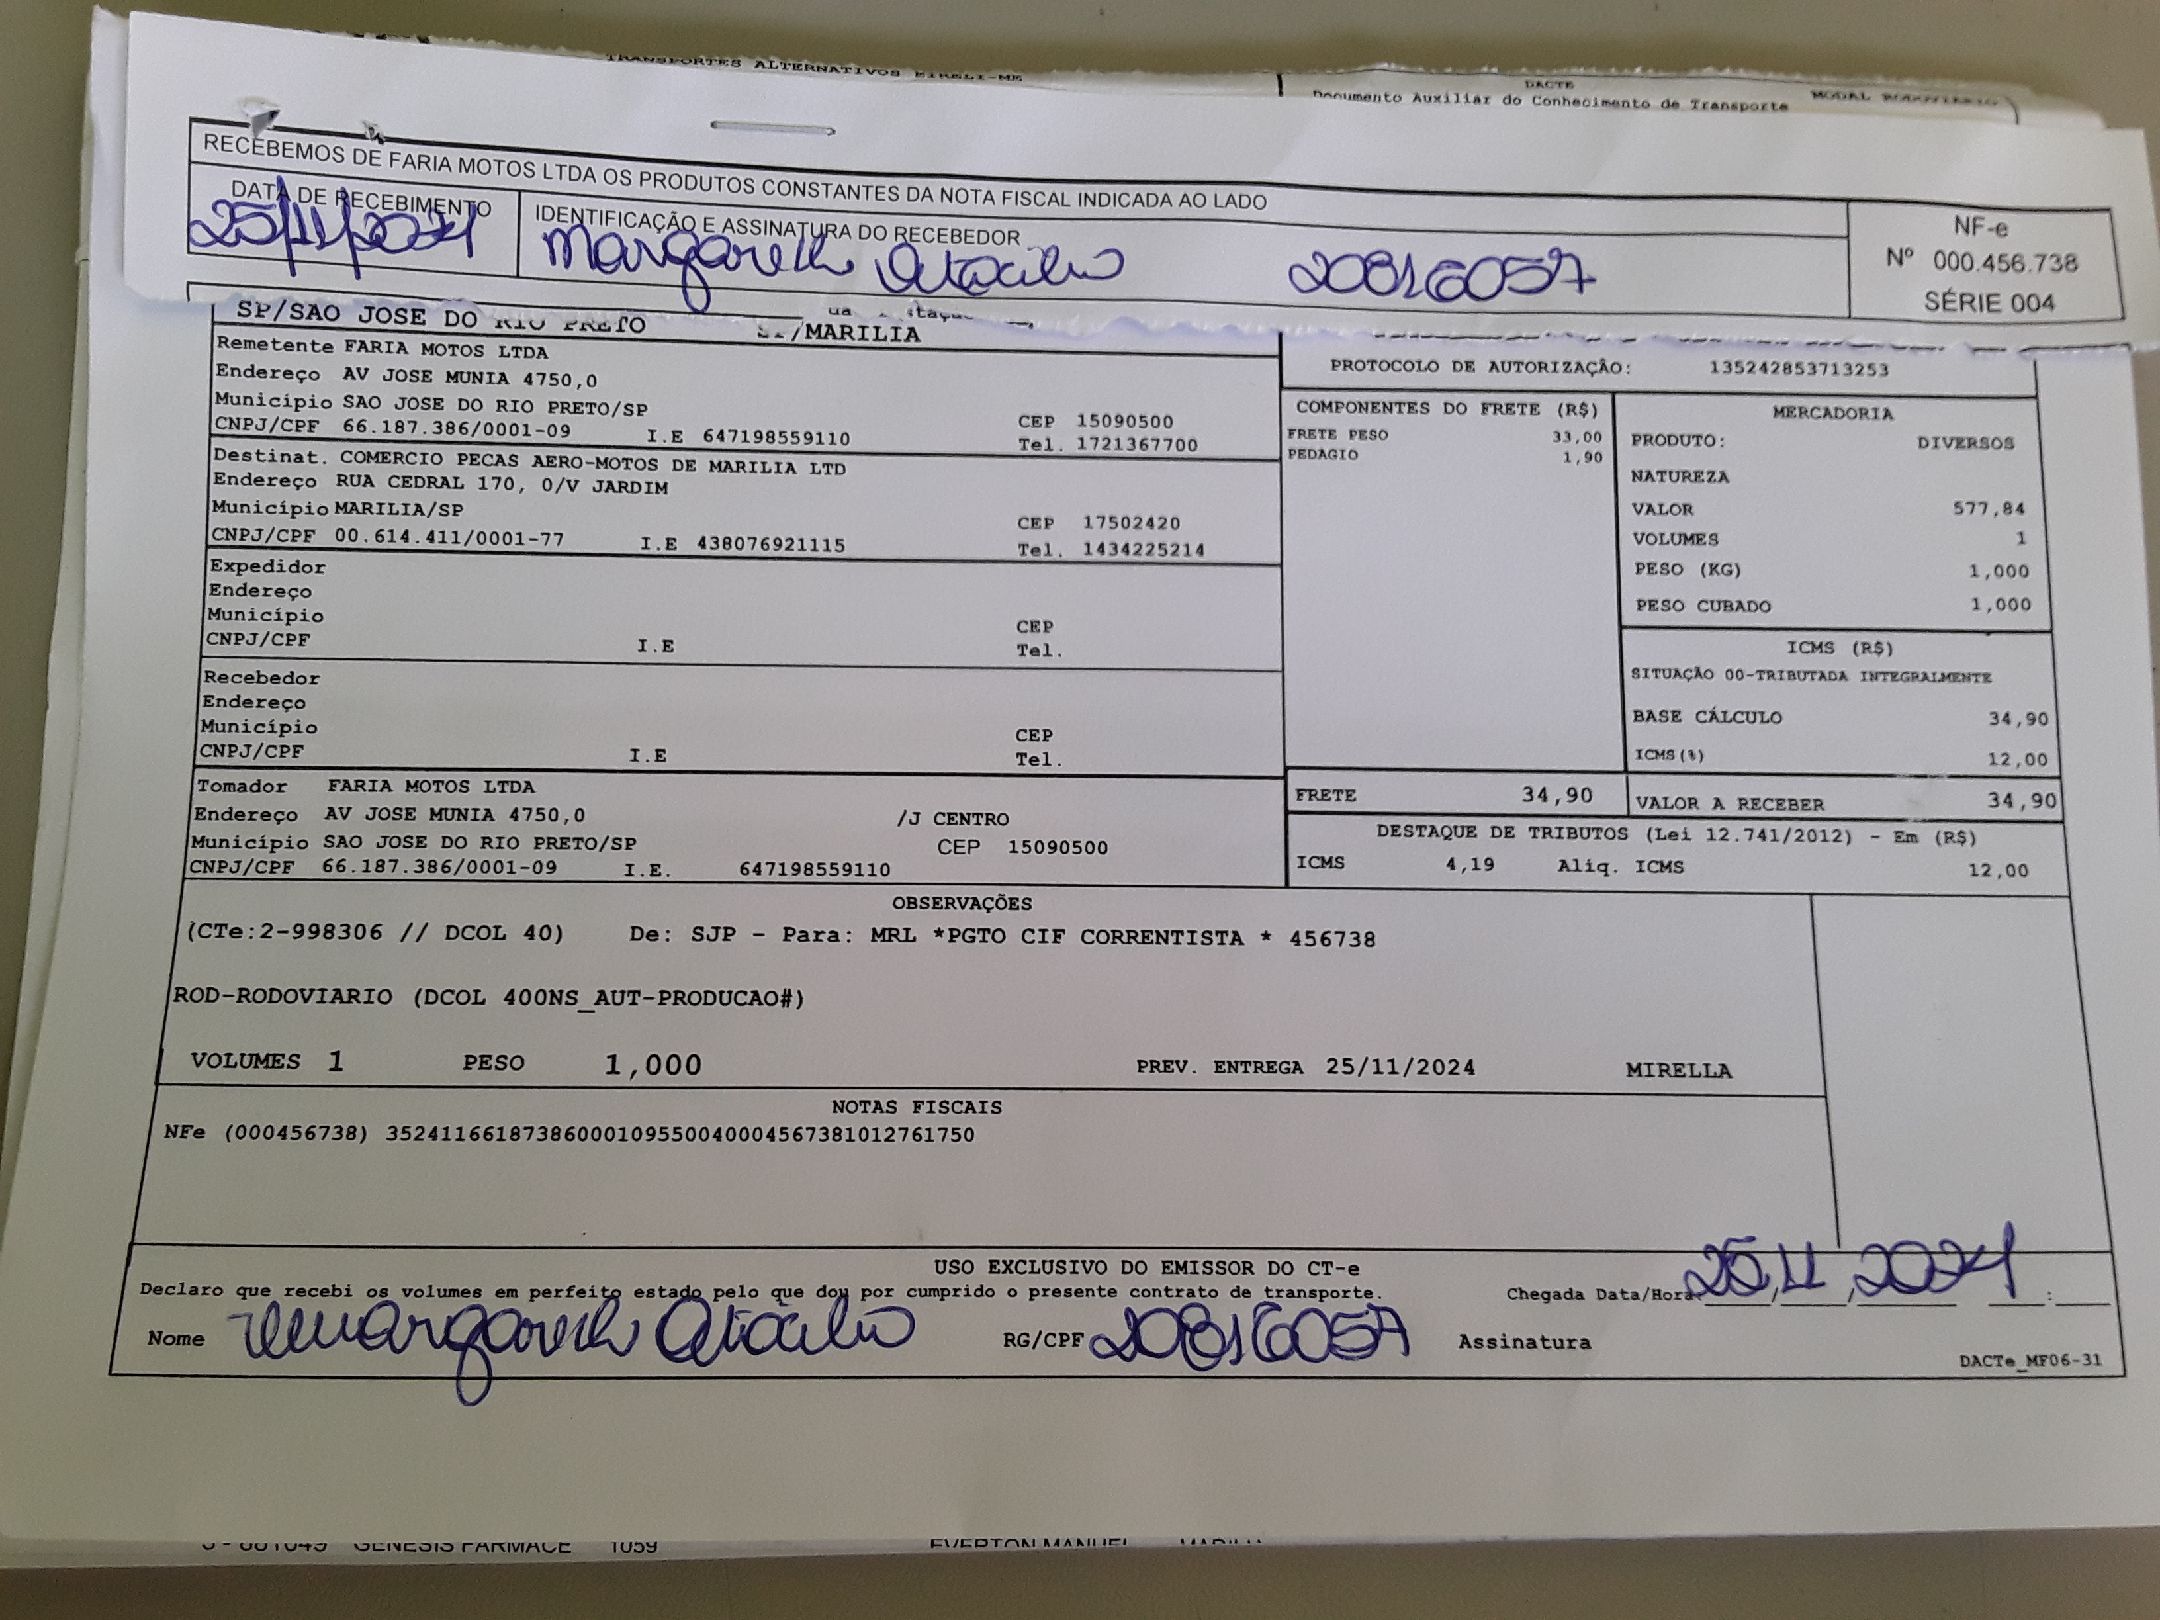 TRANSPORTES ALTERNATIVOS EIRELI-ME
DACTE
Documento Auxiliar do Conhecimento de Transporte
MODAL RODOVIÁRIO
RECEBEMOS DE FARIA MOTOS LTDA OS PRODUTOS CONSTANTES DA NOTA FISCAL INDICADA AO LADO
DATA DE RECEBIMENTO
25/11/2024
IDENTIFICAÇÃO E ASSINATURA DO RECEBEDOR
Margareth Otacilio 20816057
NF-e
Nº 000.456.738
SÉRIE 004
SP/SAO JOSE DO RIO PRETO /MARILIA
Remetente FARIA MOTOS LTDA
Endereço AV JOSE MUNIA 4750,0
Município SAO JOSE DO RIO PRETO/SP CEP 15090500
CNPJ/CPF 66.187.386/0001-09 I.E 647198559110 Tel. 1721367700
Destinat. COMERCIO PECAS AERO-MOTOS DE MARILIA LTD
Endereço RUA CEDRAL 170, 0/V JARDIM
Município MARILIA/SP CEP 17502420
CNPJ/CPF 00.614.411/0001-77 I.E 438076921115 Tel. 1434225214
Expedidor
Endereço
Município CEP
CNPJ/CPF I.E Tel.
Recebedor
Endereço
Município CEP
CNPJ/CPF I.E Tel.
Tomador FARIA MOTOS LTDA
Endereço AV JOSE MUNIA 4750,0 /J CENTRO
Município SAO JOSE DO RIO PRETO/SP CEP 15090500
CNPJ/CPF 66.187.386/0001-09 I.E. 647198559110
PROTOCOLO DE AUTORIZAÇÃO: 135242853713253
COMPONENTES DO FRETE (R$)
FRETE PESO 33,00
PEDAGIO 1,90
MERCADORIA
PRODUTO: DIVERSOS
NATUREZA
VALOR 577,84
VOLUMES 1
PESO (KG) 1,000
PESO CUBADO 1,000
ICMS (R$)
SITUAÇÃO 00-TRIBUTADA INTEGRALMENTE
BASE CÁLCULO 34,90
ICMS(%) 12,00
FRETE 34,90 VALOR A RECEBER 34,90
DESTAQUE DE TRIBUTOS (Lei 12.741/2012) - Em (R$)
ICMS 4,19 Aliq. ICMS 12,00
OBSERVAÇÕES
(CTe:2-998306 // DCOL 40) De: SJP - Para: MRL *PGTO CIF CORRENTISTA * 456738
ROD-RODOVIARIO (DCOL 400NS_AUT-PRODUCAO#)
VOLUMES 1 PESO 1,000 PREV. ENTREGA 25/11/2024 MIRELLA
NOTAS FISCAIS
NFe (000456738) 35241166187386000109550040004567381012761750
USO EXCLUSIVO DO EMISSOR DO CT-e
Declaro que recebi os volumes em perfeito estado pelo que dou por cumprido o presente contrato de transporte. Chegada Data/Hora: 25/11/2024 :
Nome Margareth Otacilio RG/CPF 20816057 Assinatura
DACTe_MF06-31
GENESIS FARMACE 1059 EVERTON MANUEL